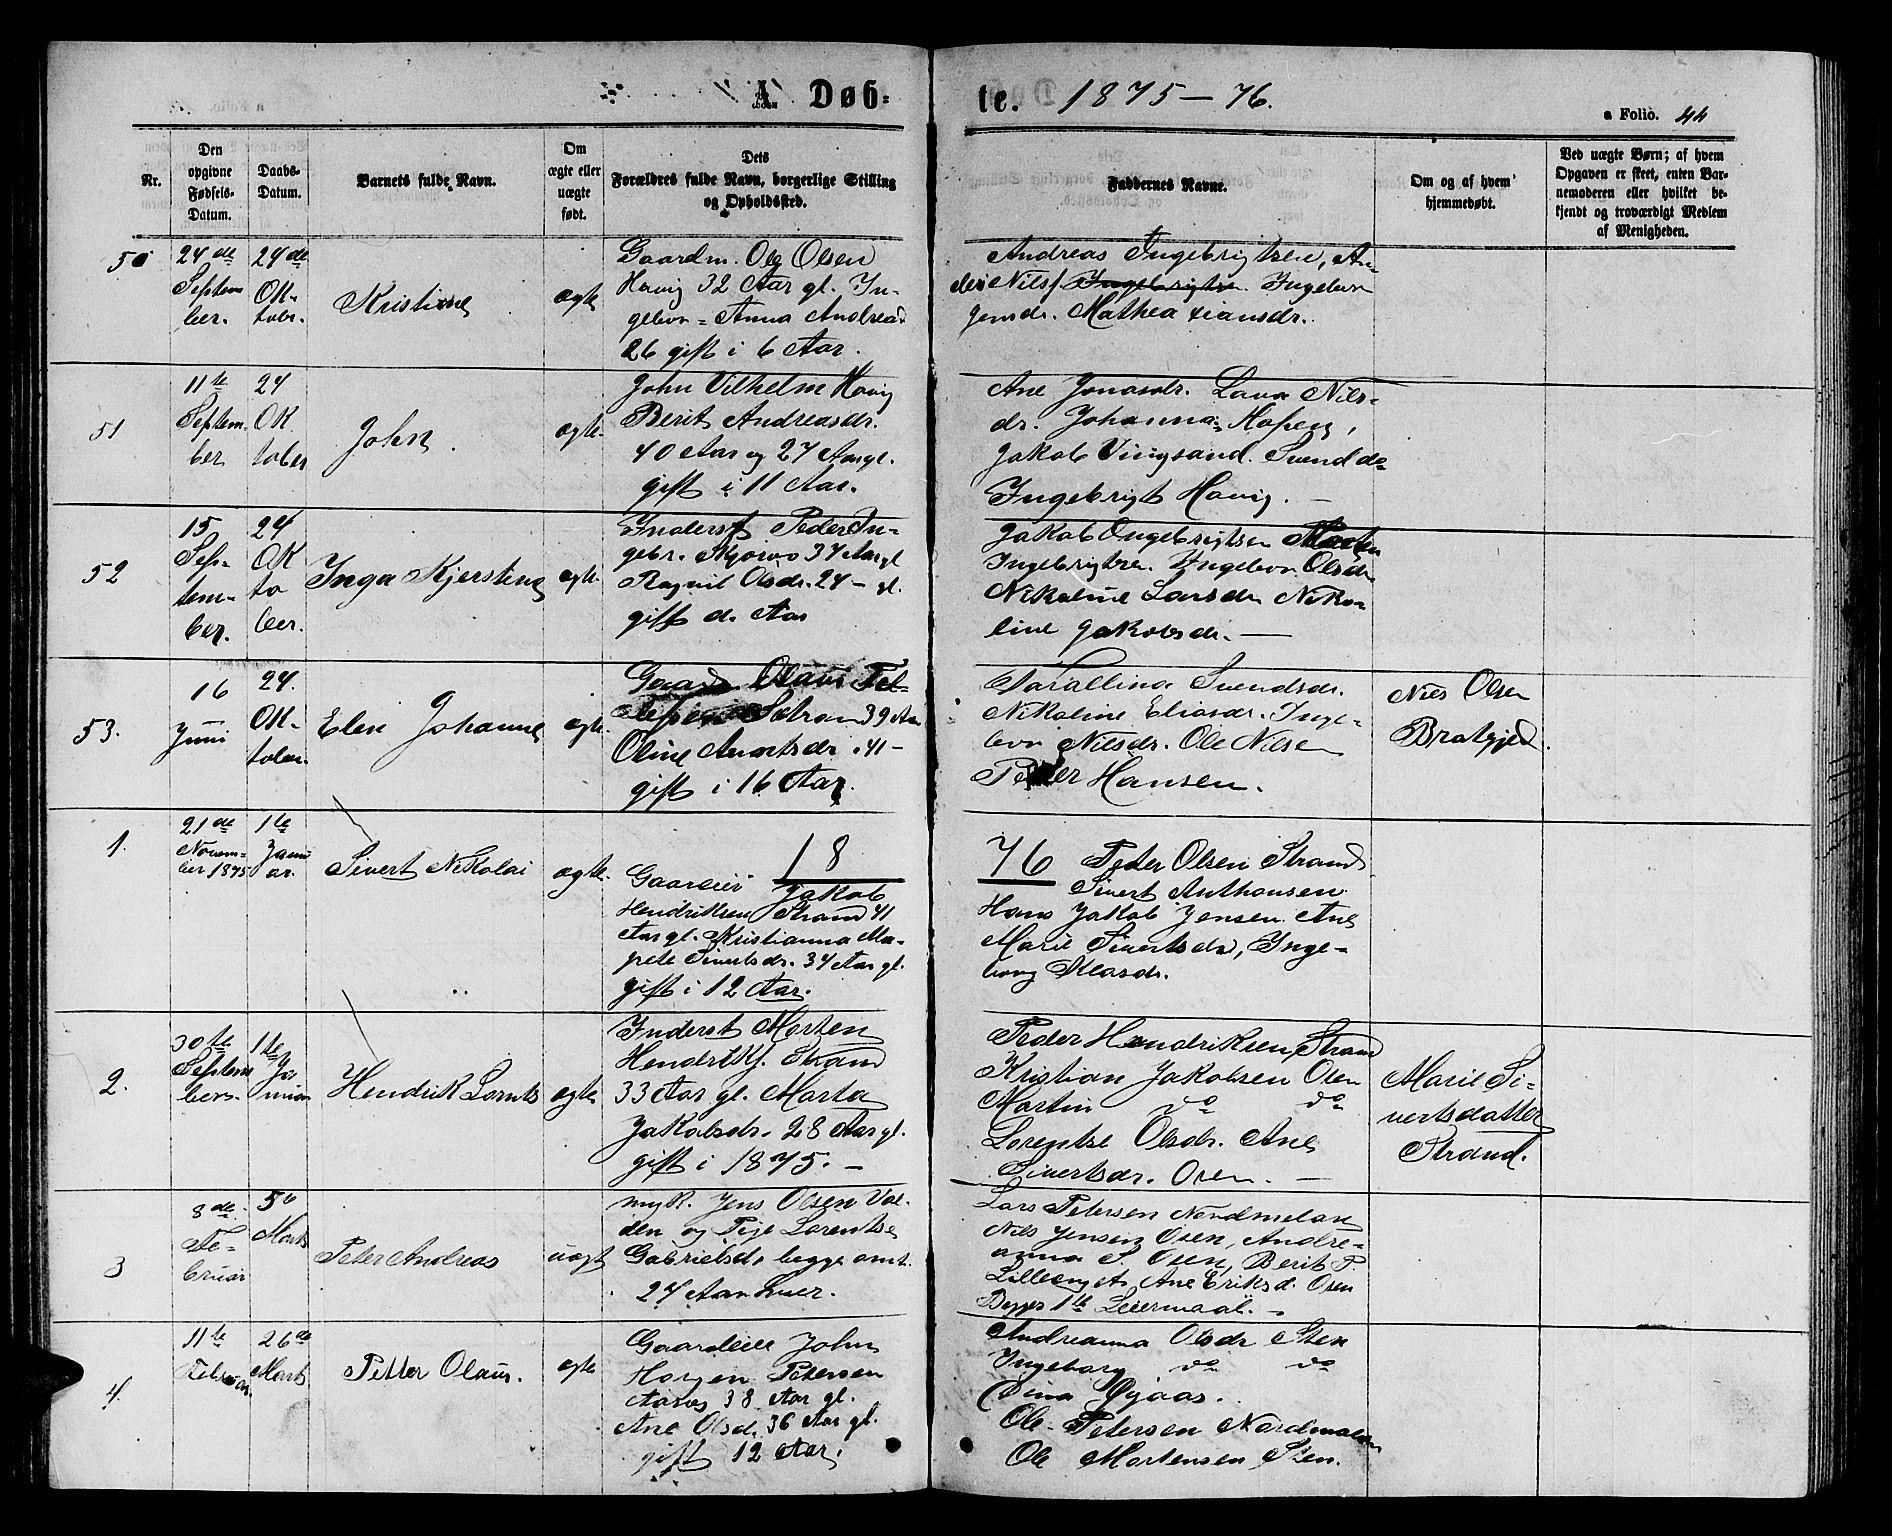 A Døb-
te. 1875-76.
a Folio. 44
Nr.
Den opgivne Fødsels-Datum.
Daabs-Datum.
Barnets fulde Navn.
Om ægte eller uægte født.
Dets Forældres fulde Navn, borgerlige Stilling og Opholdssted.
Faddernes Navne.
Om og af hvem hjemmedøbt.
Ved uægte Børn; af hvem Opgaven er skeet, enten Barnemoderen eller hvilket bekjendt og troværdigt Medlem af Menigheden.
50
24de Septem
ber.
24de
Ok-
tobr.
Kristine
ægte
Gaardm. Ole Olsen
Hovig 32 Aar gl. In-
gebor- Anna Andread
26 gift i 6 Aar.
Andreas Ingebrigtsen, An-
ders Nilsf. Ingebor
gensdr. Mathea
51
11te
Septem-
ber
24
OK
tober
John
ægte.
John Vilhelm Hovig
Berit Andreasdr.
40 Aar og 27 Aar gl.
gift i 11 Aar.
Ane Jonasdr. Laura Nils-
dr. Johanna Hopen,
Jakob Vingsand. Svend do
Ingebrigt Hovig. -
52
15
Sep-
tem-
ber.
24
OK
to
ber.
Inga Kjerstine
ægte.
Inderst Peder In-
gebr. 34 Aar gl
Ragnil Olsdr. 24 - gl.
gift d. Aar
Jakob Ingebrigtsen Morten
Ingebrigtsen. Ingebor Olsdr
Nikoline Larsdr Niko-
line Jakobsdr. -
53.
16
Juni
24.
OK-
tober.
Elen Johanne
ægte.
Gaard Olaus Tol-
lefsen 39 Aar
Oline Arntsdr. 41 -
gift i 16 Aar.
Svendsdr.
Nikoline Eliasdr. Inge-
bor Nilsdr. Ole Nilsen
Petter Hansen.
Nils Olsen
Bratgjed.
18
76
1.
21de
Novem-
ber 1875
1te
Janu
ar.
Sivert Nikolai
ægte.
Gaareier Jakob
Hendriksen Strand 41
Aar gl. Kristianna Ma-
rete Sivertsdr. 34 Aar gl.
gift i 12 Aar.
Peter Olsen Strand
Sivert Anthonsen
Hans Jakob Jensen. Ane
Marie Sivertsdr, Inge-
borg
2.
30te
Septem
ber.
1te
Ja
nuar
Hendrik Lornts
ægte
Inderst Morten
Hendrikf. Strand
33 Aar gl. Marta
Jakobsdr. 28 Aar gl.
gift i 1875. -
Peder Hendriksen Strand
Kristian Jakobsen Osen
Martin do do
Lorentse Olsdr. Ane
Sivertsdr. Osen. -
Marie Si-
vertsdatter
Strand.
3
8de
Fe-
bruar
5te
Marts
Peter Andreas
uægt
ungk. Jens Olsen Val-
den og Pige Lorentse
Gabrielsd. begge omt.
24 Aar
Lars Petersen Nordmelan
Nils Jensen Osen, Andre-
anna S. Osen, Berit P.
Ane Eriksd. Osen
Begges 1te Leiermaal. -
4.
11te
Februar.
26de
Marts
Petter Olaus.
ægte
Gaardeier John
Horgen Petersen
38 Aar gl.
Ane Olsd. 36 Aar gl.
gift 12 Aar.
Andreanna Olsdr Sten
Ingeborg do do
Ole Petersen Nordmelan
Ole Mortensen Sten.